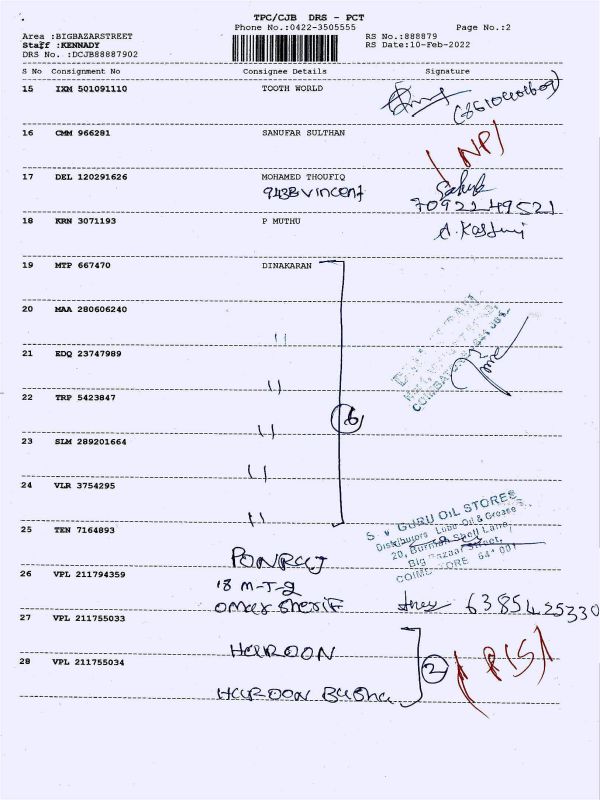 TPC/CJB DRS - PCT
Phone No.:0422-3505555
Page No.:2
Area :BIGBAZARSTREET
RS No.:888879
Staff :KENNADY
RS Date:10-Feb-2022
DRS No. :DCJB88887902
S No Consignment No Consignee Details Signature
15 IXM 501091110 TOOTH WORLD
16 CMM 966281 SANUFAR SULTHAN
(NP)
17 DEL 120291626 MOHAMED THOUFIQ
Vincent
7092149521
18 KRN 3071193 P MUTHU
19 MTP 667470 DINAKARAN
20 MAA 280606240
21 EDQ 23747989
22 TRP 5423847
6
23 SLM 289201664
24 VLR 3754295
25 TEN 7164893
S V GURU OIL STORES
Distributors Lube Oil & Grease
20, Burmah Shell Lane,
Big Bazaar Street,
COIMBATORE 641 001
PONRAJ
26 VPL 211794359
18 M-T-2
omar Sherif
6385425330
27 VPL 211755033
HAROON
28 VPL 211755034
2
HAROON